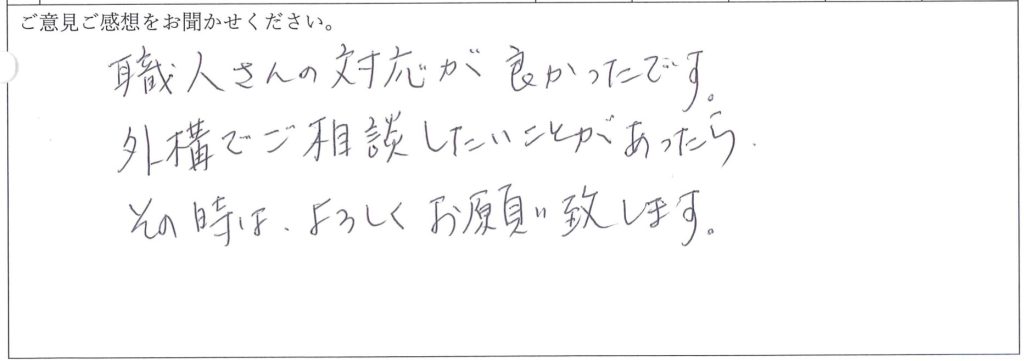 ご意見ご感想をお聞かせください。
職人さんの対応が良かったです。
外構でご相談したいことがあったら、
その時は、よろしくお願い致します。